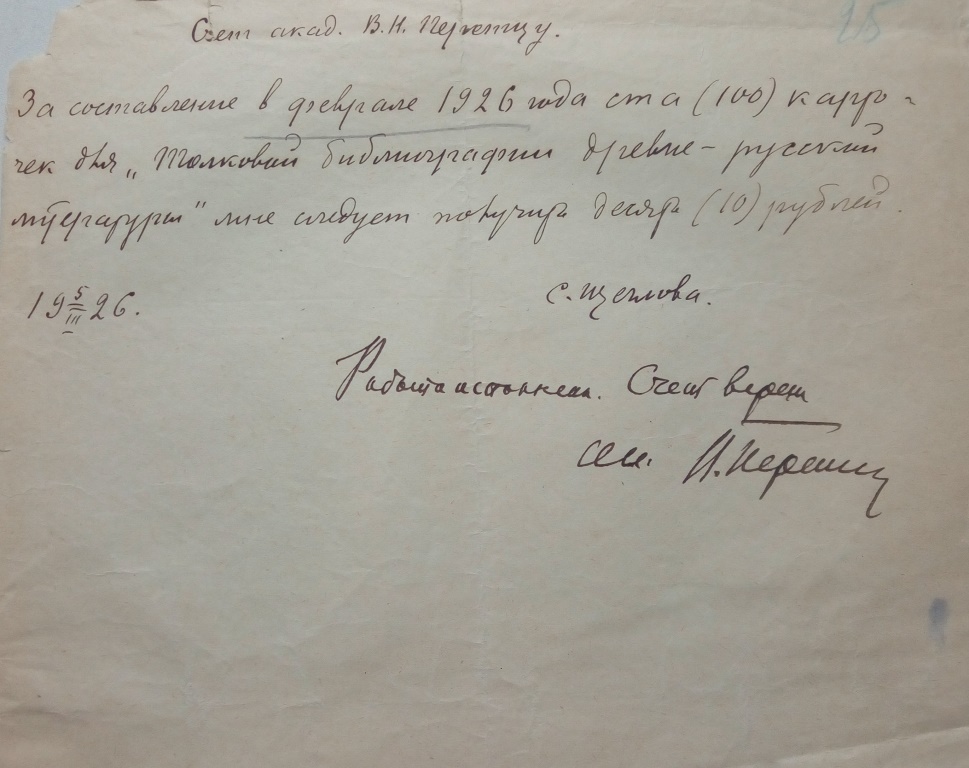 25
Счет акад. В.Н. Перетцу.
За составление в феврале 1926 года ста (100) карто-
чек для „Толковой библиографии древне-русской
литературы" мне следует получить десять (10) рублей.
19 5/III 26.
С. Щеглова.
Работа исполнена. Счет верен
В. Перетц